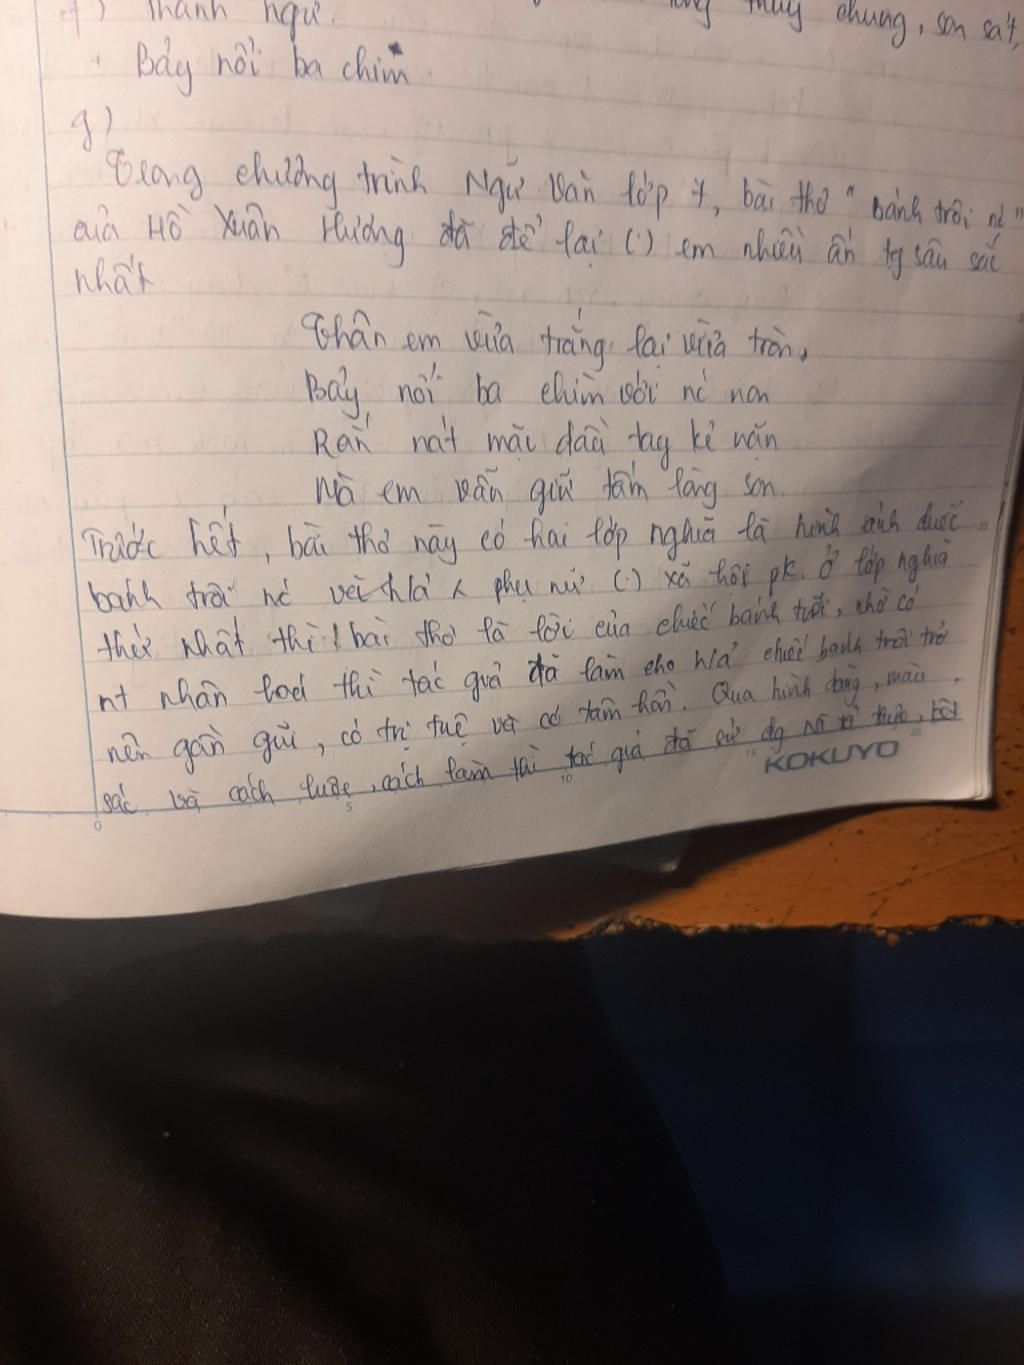 f) Thành ngữ. thủy chung, son sắt,
Bảy nổi ba chìm
g)
Trong chương trình Ngữ Văn lớp 7, bài thơ "bánh trôi nc"
của Hồ Xuân Hương đã để lại (.) em nhiều ấn tg sâu sắc
nhất
Thân em vừa trắng lại vừa tròn,
Bảy nổi ba chìm với nc non
Rắn nát mặc dầu tay kẻ nặn
Mà em vẫn giữ tấm lòng son.
Trước hết, bài thơ này có hai lớp nghĩa là hình ảnh
bánh trôi nc và h/ả phụ nữ (.) xã hội pk. Ở lớp nghĩa
thứ nhất thì bài thơ là lời của chiếc bánh trôi, nhờ có
nt nhân hoá thì tác giả đã làm cho h/ả chiếc bánh trôi trở
nên gần gũi, có trị tuệ và có tâm hồn. Qua hình dáng, màu
sắc và cách luộc, cách làm thì tác giả đã sử dg
KOKUYO
0 5 10 15 20